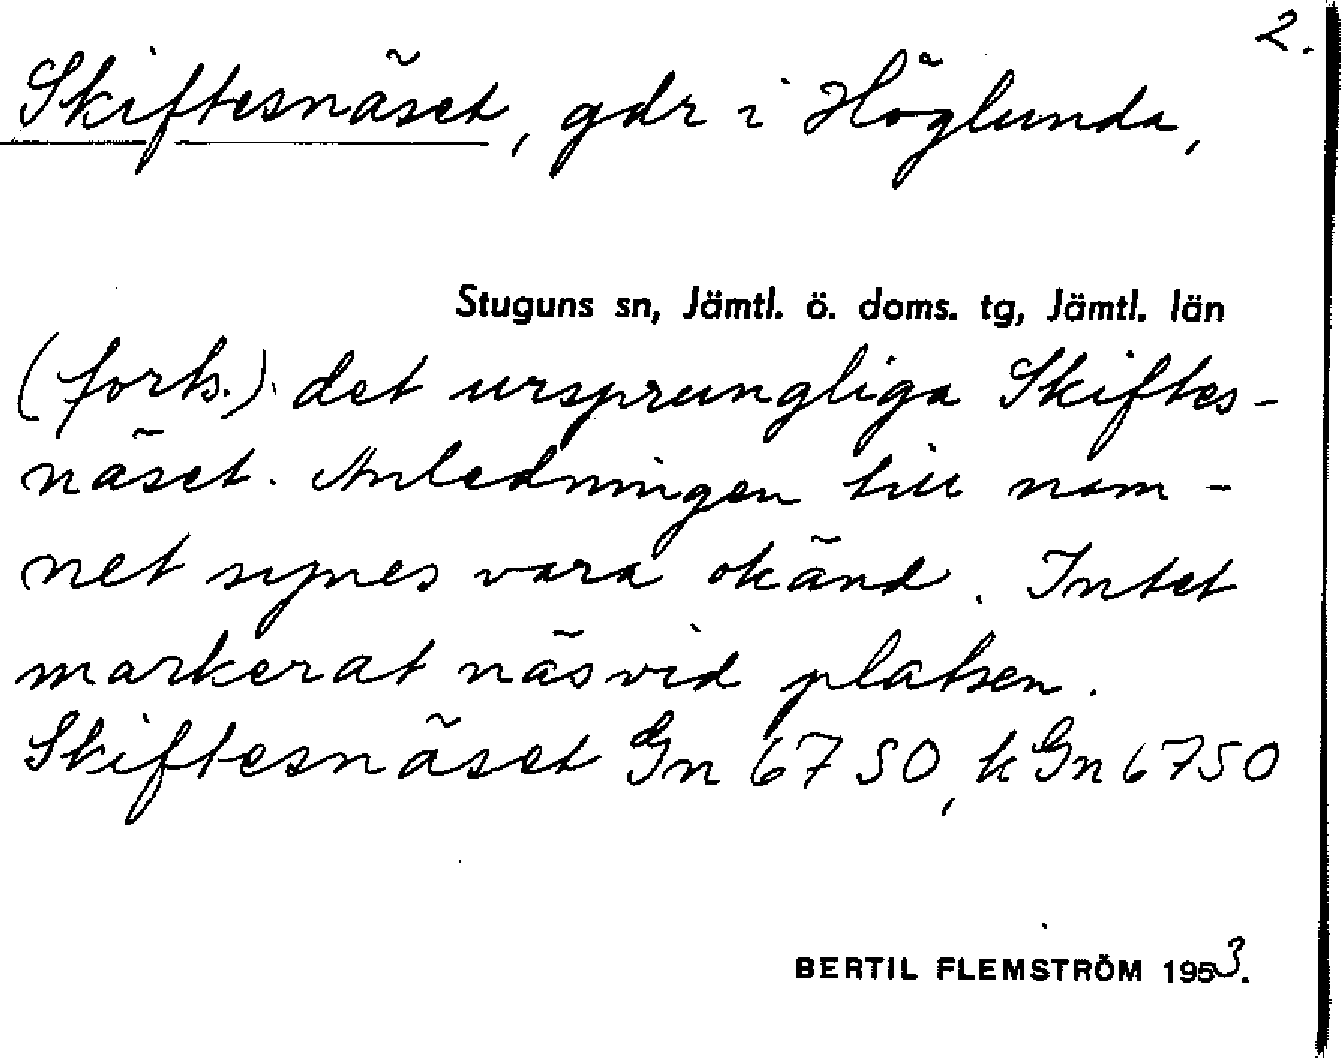 2.
Skiftesnäset, gdr i Höglunda,
Stuguns sn, Jämtl. ö. doms. tg, Jämtl. län
(forts.). det ursprungliga Skiftes-
näset. Anledningen till nam-
net synes vara okänd. Intet
markerat näs vid platsen.
Skiftesnäset Gn 6750, kGn 6750
BERTIL FLEMSTRÖM 1953.